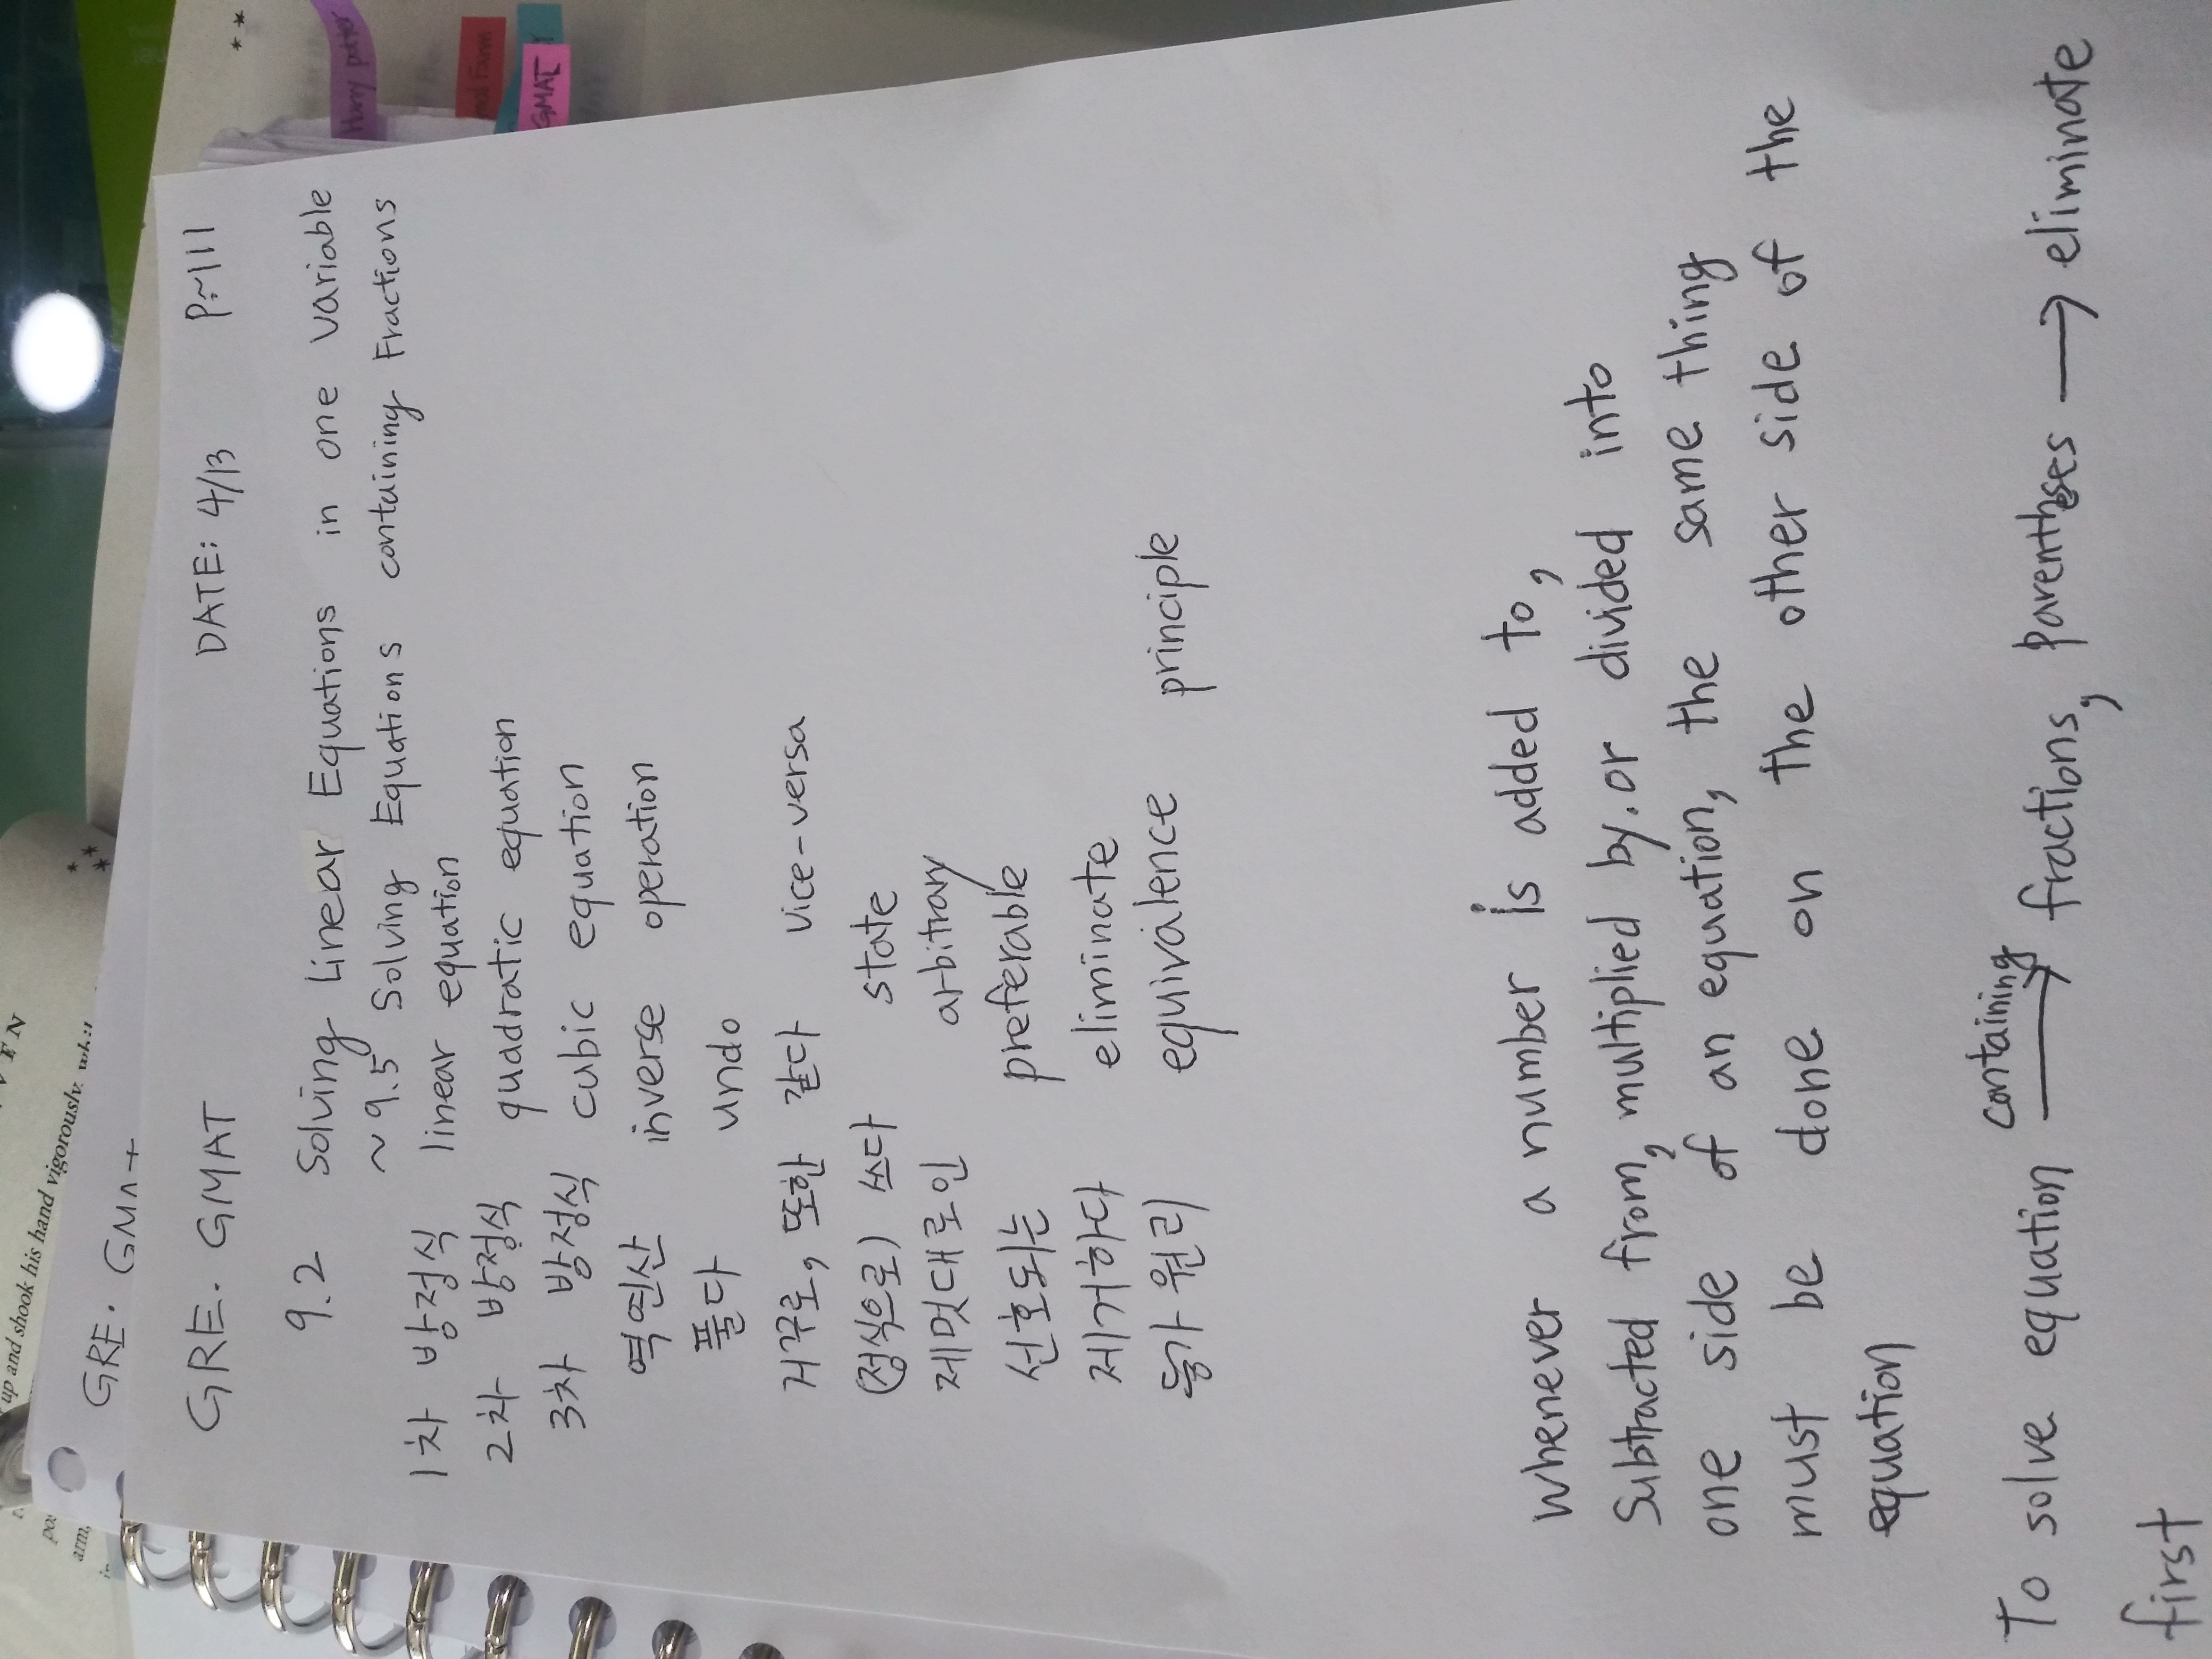 up and shook his hand vigorously.
GRE. GMAT
Harry potter
GMAT
GRE. GMAT DATE: 4/13 P~111
9.2 Solving Linear Equations in one variable
~9.5 Solving Equations containing Fractions
1차 방정식 linear equation
2차 방정식 quadratic equation
3차 방정식 cubic equation
역연산 inverse operation
풀다 undo
거꾸로, 또한 같다 vice-versa
(정식으로) 쓰다 state
제멋대로인 arbitrary
선호되는 preferable
제거하다 eliminate
등가 원리 equivalence principle
whenever a number is added to,
Subtracted from, multiplied by. or divided into
one side of an equation, the same thing
must be done on the other side of the
equation
To solve equation containing → fractions, parentheses → eliminate
first